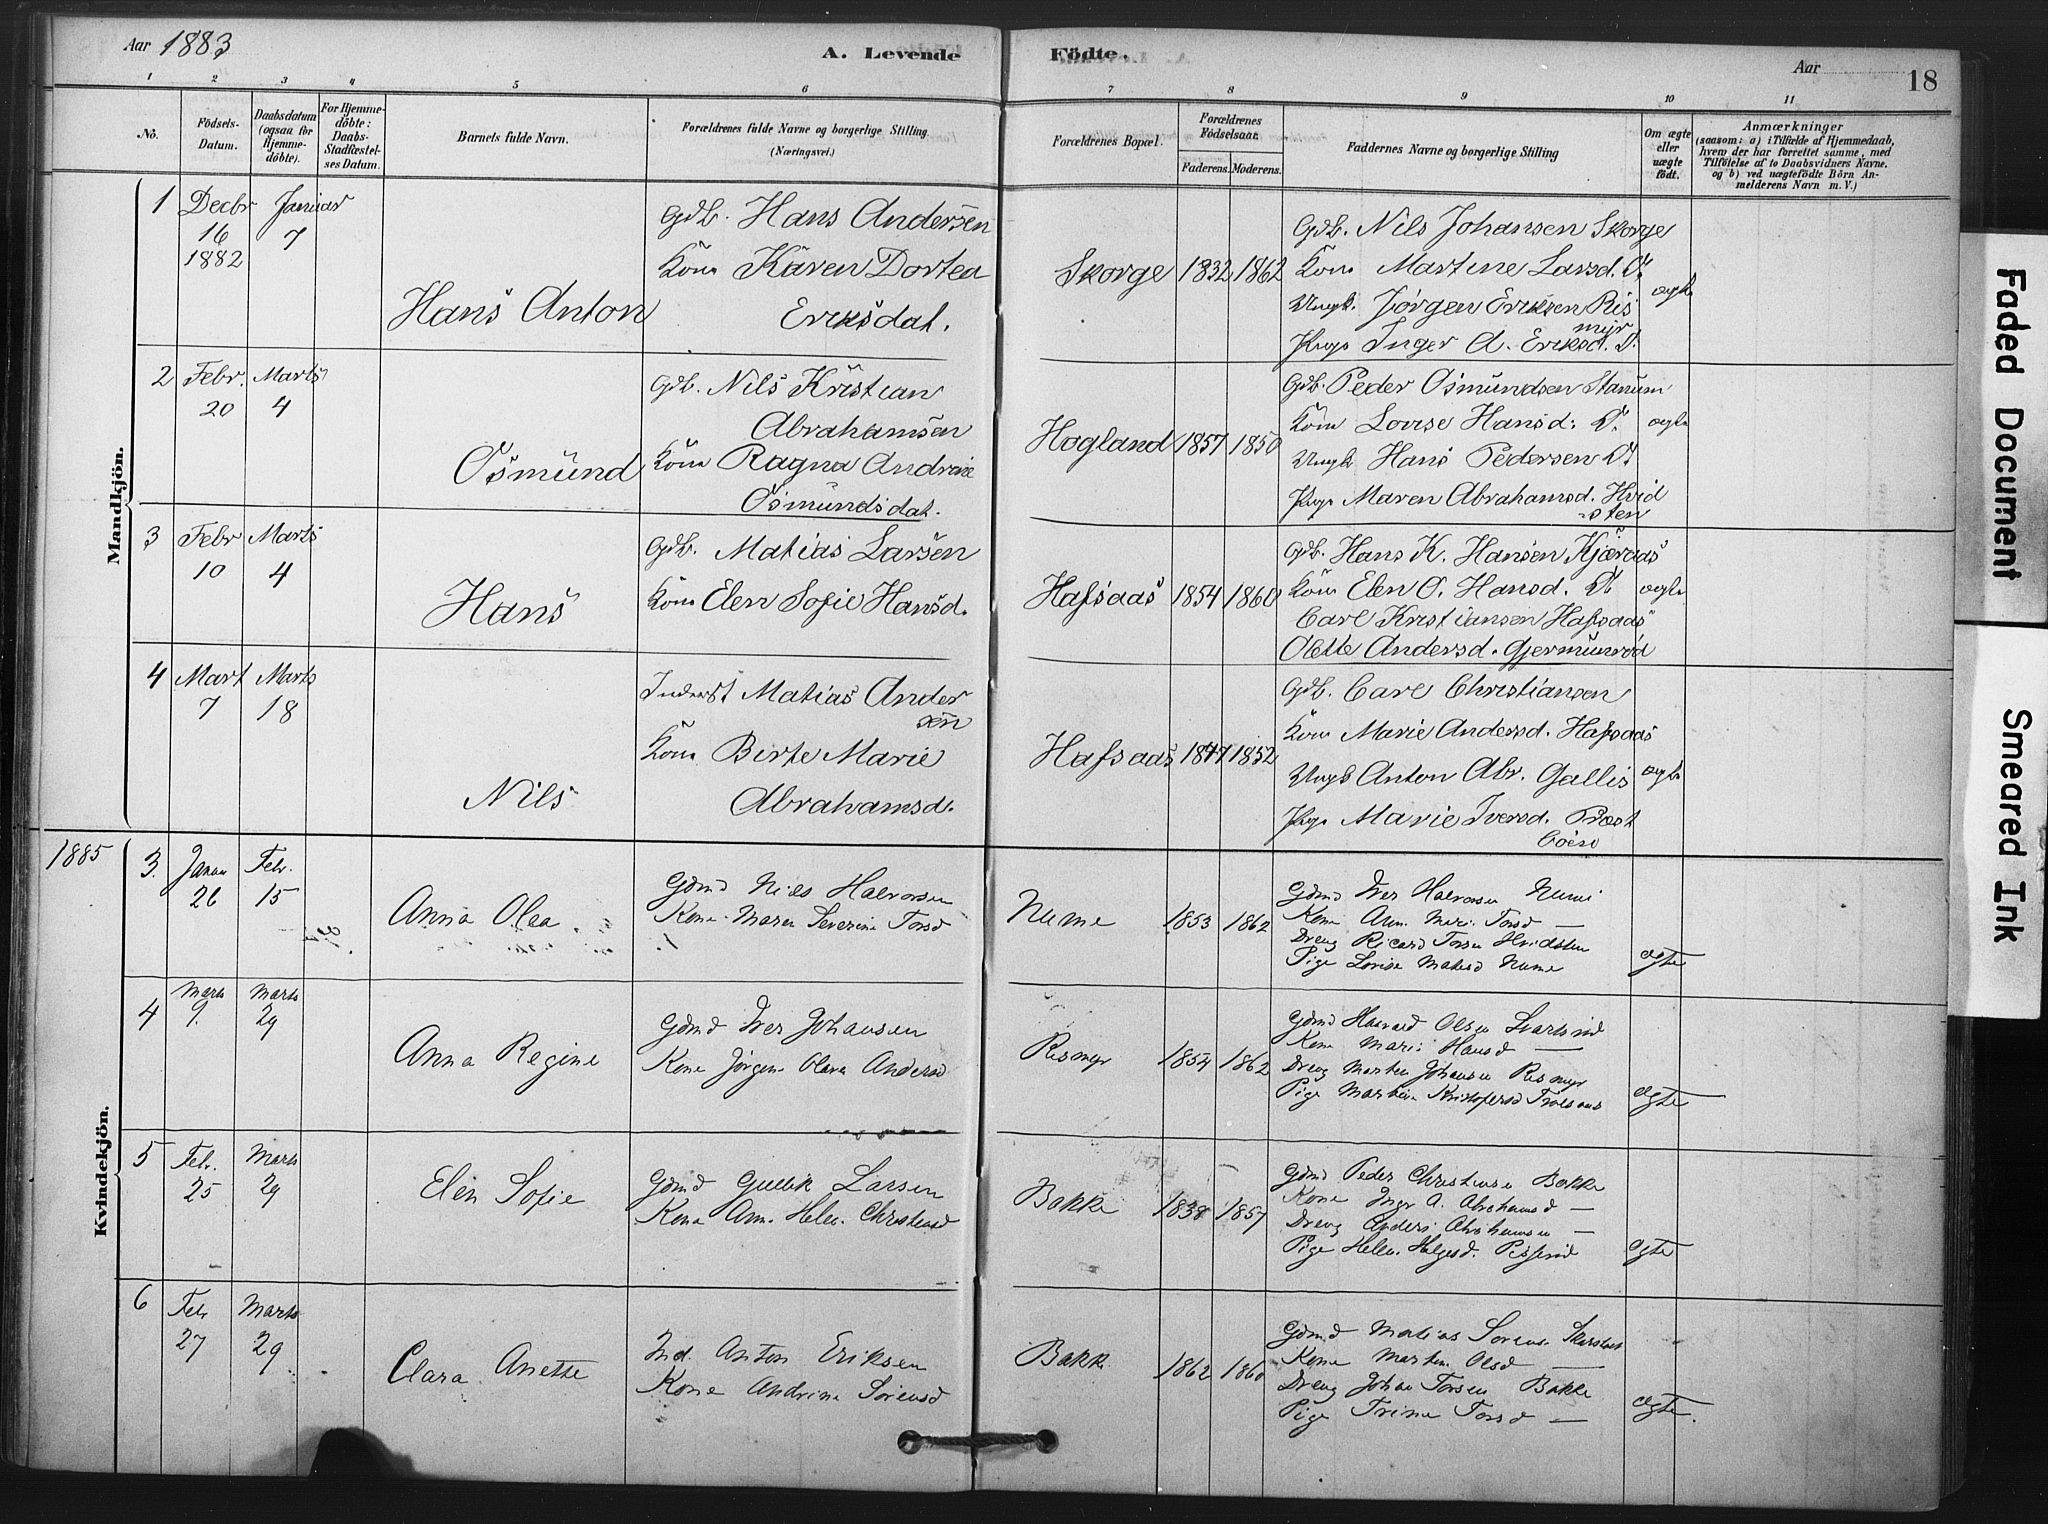 Aar 1883
A. Levende Födte.
Aar
18
1 2 3 4 5 6 7 8 9 10 11
No.
Födsels-Datum.
Daabsdatum (ogsaa for Hjemmedöbte).
For Hjemmedöbte: Daabs-Stadfæstelses Datum.
Barnets fulde Navn.
Forældrenes fulde Navne og borgerlige Stilling (Næringsvei.)
Forældrenes Bopæl.
Forældrenes Födselsaar.
Faderens. Moderens.
Faddernes Navne og borgerlige Stilling
Om ægte eller uægte födt.
Anmærkninger
(saasom: a) i Tilfælde af Hjemmedaab,
hvem der har forrettet samme, med
Tilföielse af to Daabsvidners Navne.
og b) ved uægtefödte Börn Anmelderens Navn m. V.)
Mandkjön.
1 Decbr 16 1882
Januar 7
Hans Anton
Gdb. Hans Andersen
Kone Karen Dortea
Eriksdat.
Skorge 1832 1862
Gdb. Nils Johansen Skorge
Kone Martine Larsd. D.
Ungk. Jörgen Eriksen Rismyr
Pige Inger A. Eriksd. D.
ægte
2 Febr. 20
Marts 4
Osmund
Gdb. Nils Kristian
Abrahamsen
Kone Ragna Andrine
Osmundsdat.
Hogland 1857 1850
Gdb. Peder Osmundsen Stanum
Kone Lovise Hansd. D.
Ungk Hans Pedersen D.
Pige Maren Abrahamsd. Hvidsten
ægte
3 Febr 10
Marts 4
Hans
Gdb. Matias Larsen
Kone Elen Sofie Hansd.
Hafsaas 1854 1860
Gdb. Hans K. Hansen Kjæraas
Kone Elen O. Hansd. D.
Carl Kristiansen Hafsaas
Olette Andersd. Gjermundröd
ægte
4 Mart 7
Marts 18
Nils
Inderst Matias Andersen
Kone Birte Marie
Abrahamsd.
Hafsaas 1847 1852
Gdb. Carl Christiansen
Kone Marie Andersd. Hafsaas
Ungk Anton Abr. Gallis
Pige Marie Iversd. Præst
ægte
1885
Kvindekjön.
3. Januar 26
Febr. 15
Anna Olea
Gdmd Nils Halvorsen
Kone Maren Severine Torsd
Nume 1853 1862
Gdmd Iver Halvorsen Nume
Kone Ann Mari Torsd —
Dreng Ricard Torsen Hvidsten
Pige Lovise Matisd Nume
ægte
4 Marts 9.
Marts 29
Anna Regine
Gdmd Iver Johansen
Kone Jörgine Olava Andersd
Rismyr 1854 1862
Gdmd Halvard Olsen
Kone Mari Hansd —
Dreng Martin Johansen Rismyr
Pige Martine Kristofersd
ægte
5 Febr. 25
Marts 29
Elen Sofie
Gdmd Gullik Larsen
Kone Ann Helene Christensd
Bakke 1838 1857
Gdmd Peder Christensen Bakke
Kone Ingr A. Abrahamsd —
Dreng Anders Abrahamsen —
Pige Helene Helgesd.
ægte
6 Febr 27
Marts 29
Clara Anette
Ind. Anton Eriksen
Kone Andrine Sörensd
Bakk 1862 1860
Gdmd Matias Sörensen
Kone Marten Olsd —
Dreng Johan Torsen Bakke
Pige Trine Torsd —
ægte.
Faded Document
Smeared Ink